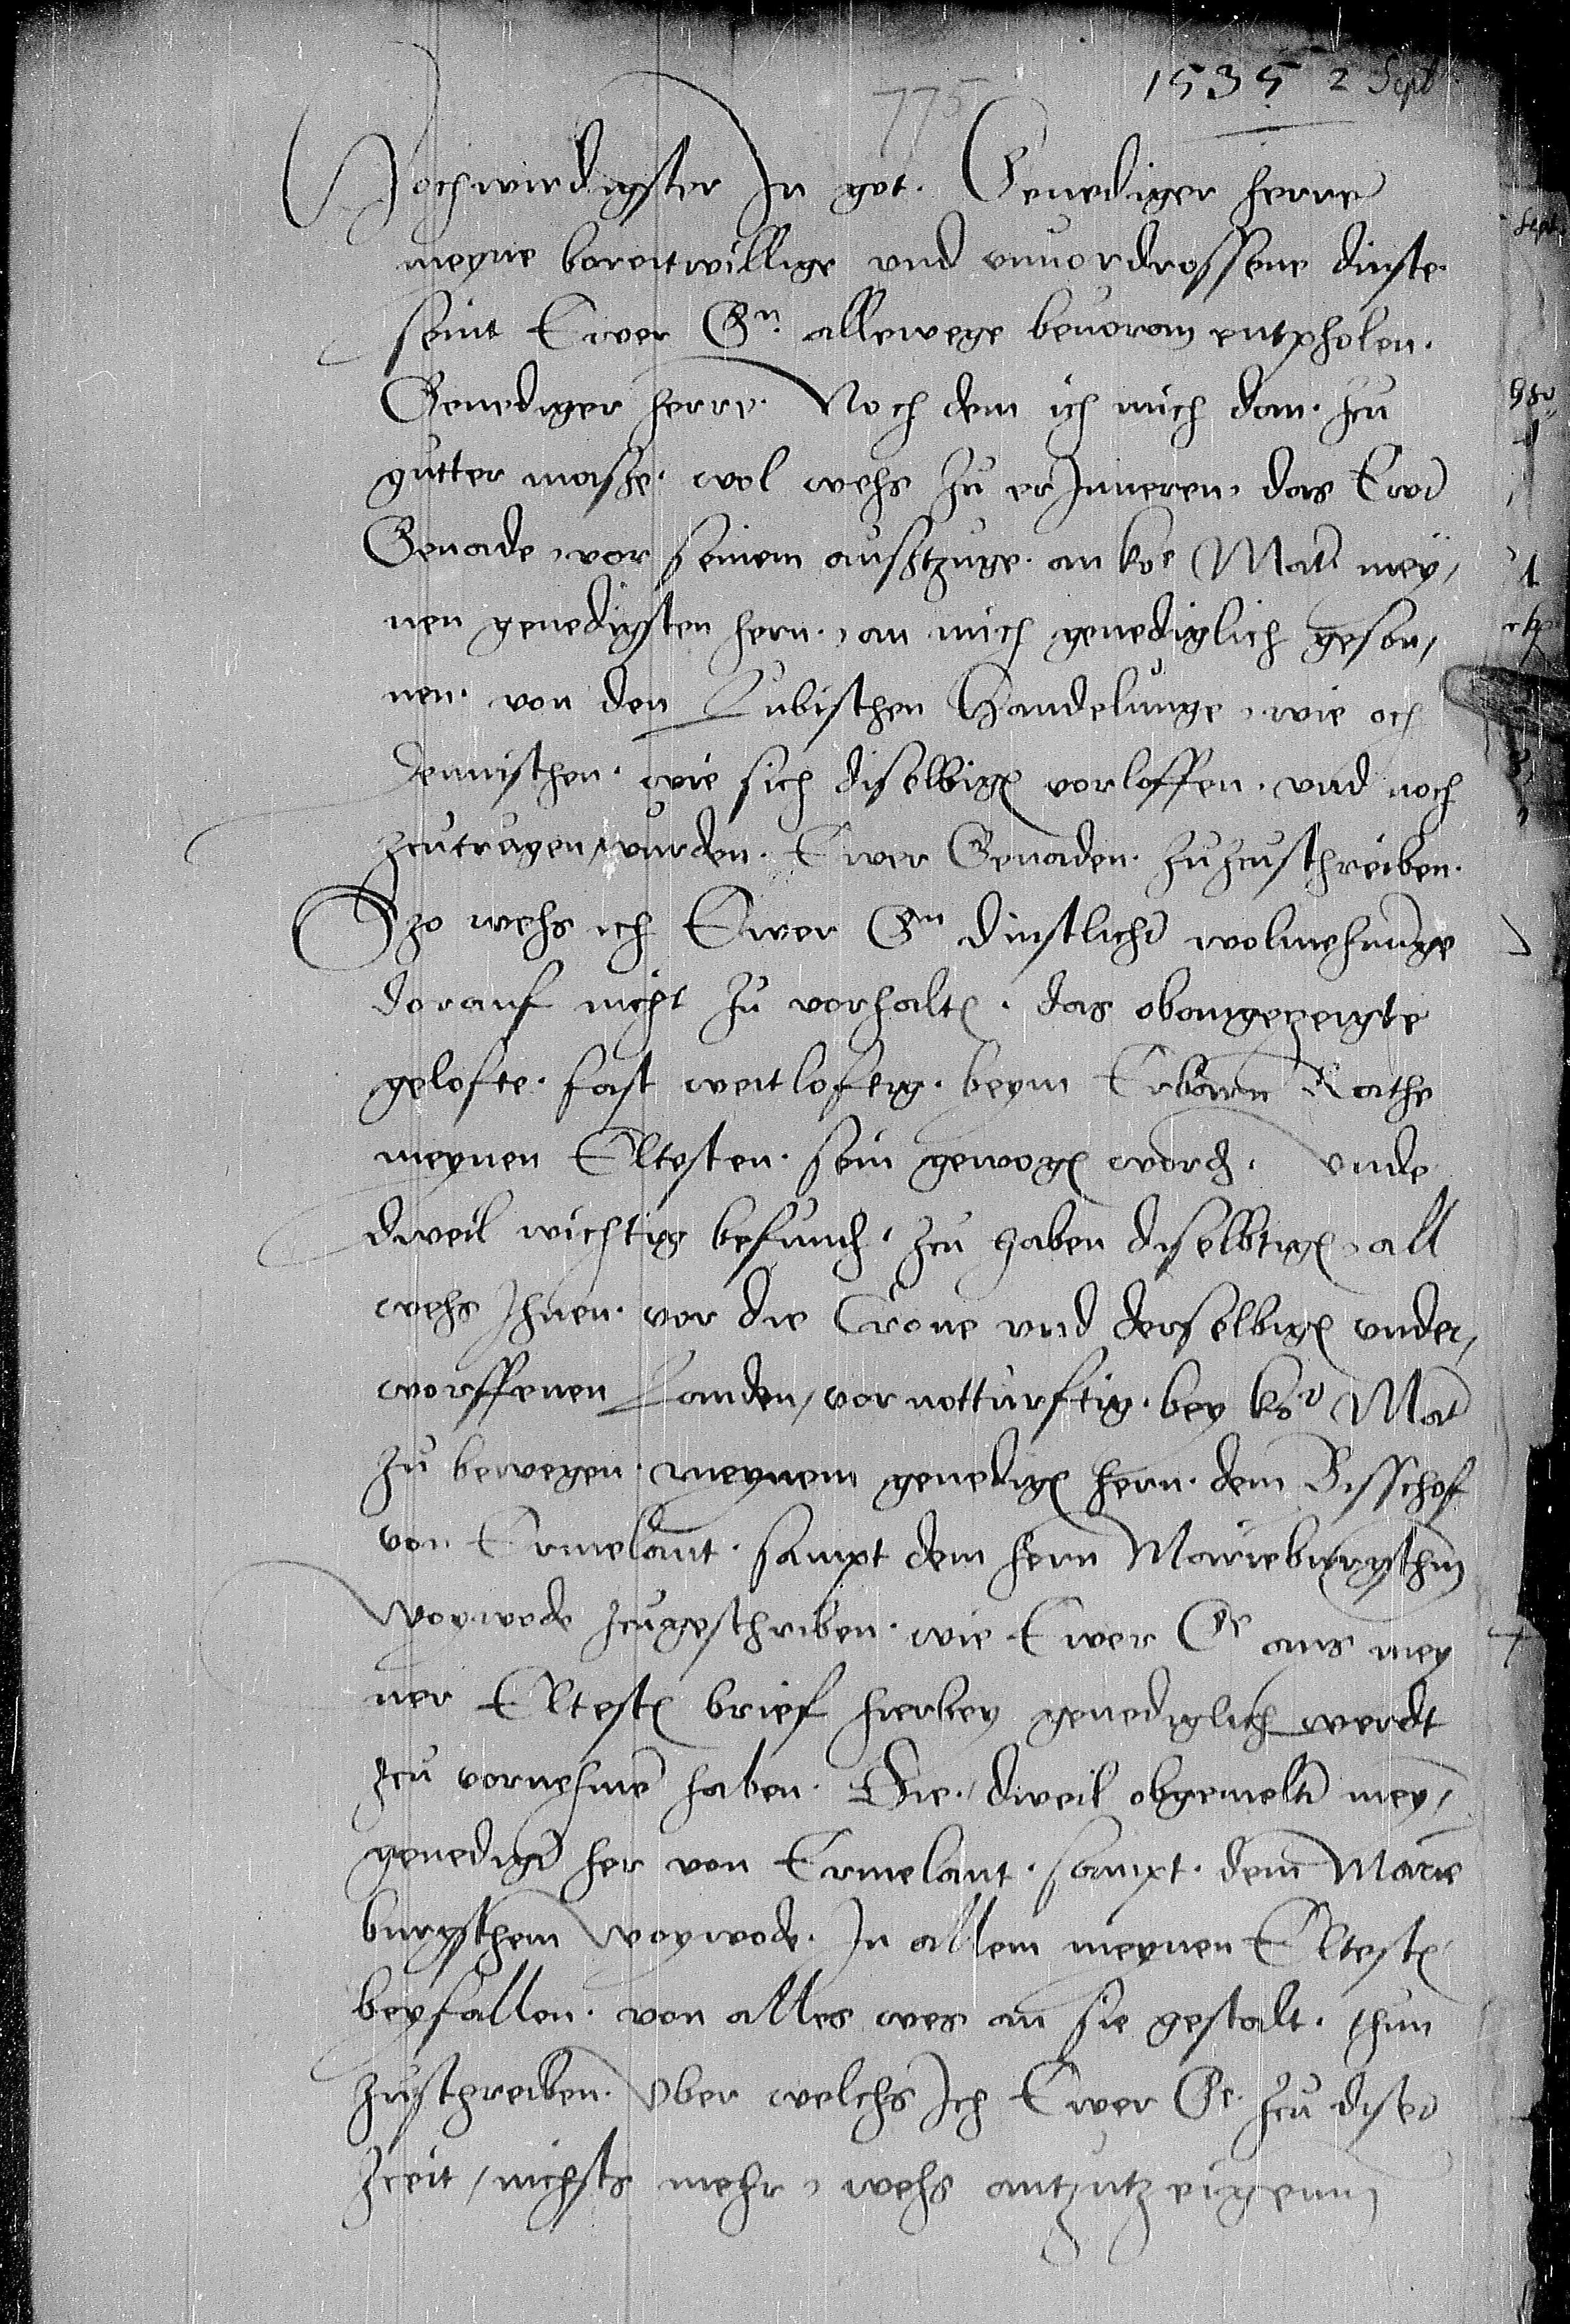 1535 2 Sept
775
Hochwirdigster In got. Genediger herre
meyne bereitwillige vnd vnuordrossene dinste.
seint Ewer Gn. allewege beuoran entpholen.
Genediger herre. Noch dem ich mich dan. zcu
gutter masze. wol wehs zu er Inneren, das Ewr
Genade, vor seinem auszczuge. an koe Mat. mey,
nen genedigsten hern. an mich genediglich geson,
nen. von den Lubischen Handelunge, wie och
Dennischen. wie sich diselbige vorloffen. vnd noch
zcutragen wurden. Ewer Genaden. zuzcuschreiben.
Szo wehs ich Ewer Gn dinstlicher wolmehnunge
dorauf nicht zu vorhalten. das obangezeigte
gelofte. fast weitloftig. beym Erbarn Rathe
meynen Eltesten. sein gewogen worden. vnde
dweil wichtig befunden, zcu haben diselbtigen, all
wehs Ihnen. vor die Crone vnd derselbigen vnder,
worffenen Landen, vor notturftig. bey kor Mat
zu bewegen. meynem genedigen hern. dem Bisschof
von Ermelant. sampt dem hern Marieburgschen
Woywode zcugeschriben. wie Ewer Ge aus mey
ner Eltesten brief hierbey genediglich werdt
zcu vornehmen haben. Die. dweil obgemelter mey,
genediger her von Ermelant. sampt. dem Marie
burgschem Woywode. In allem meynen Eltesten
beyfallen. von alles wes an sie gestalt. thun
zuschreiben. Vber welchs Ich Ewer Ge. zcu diser
Zceit, nichsts mehr, wehs antzutzeigenn